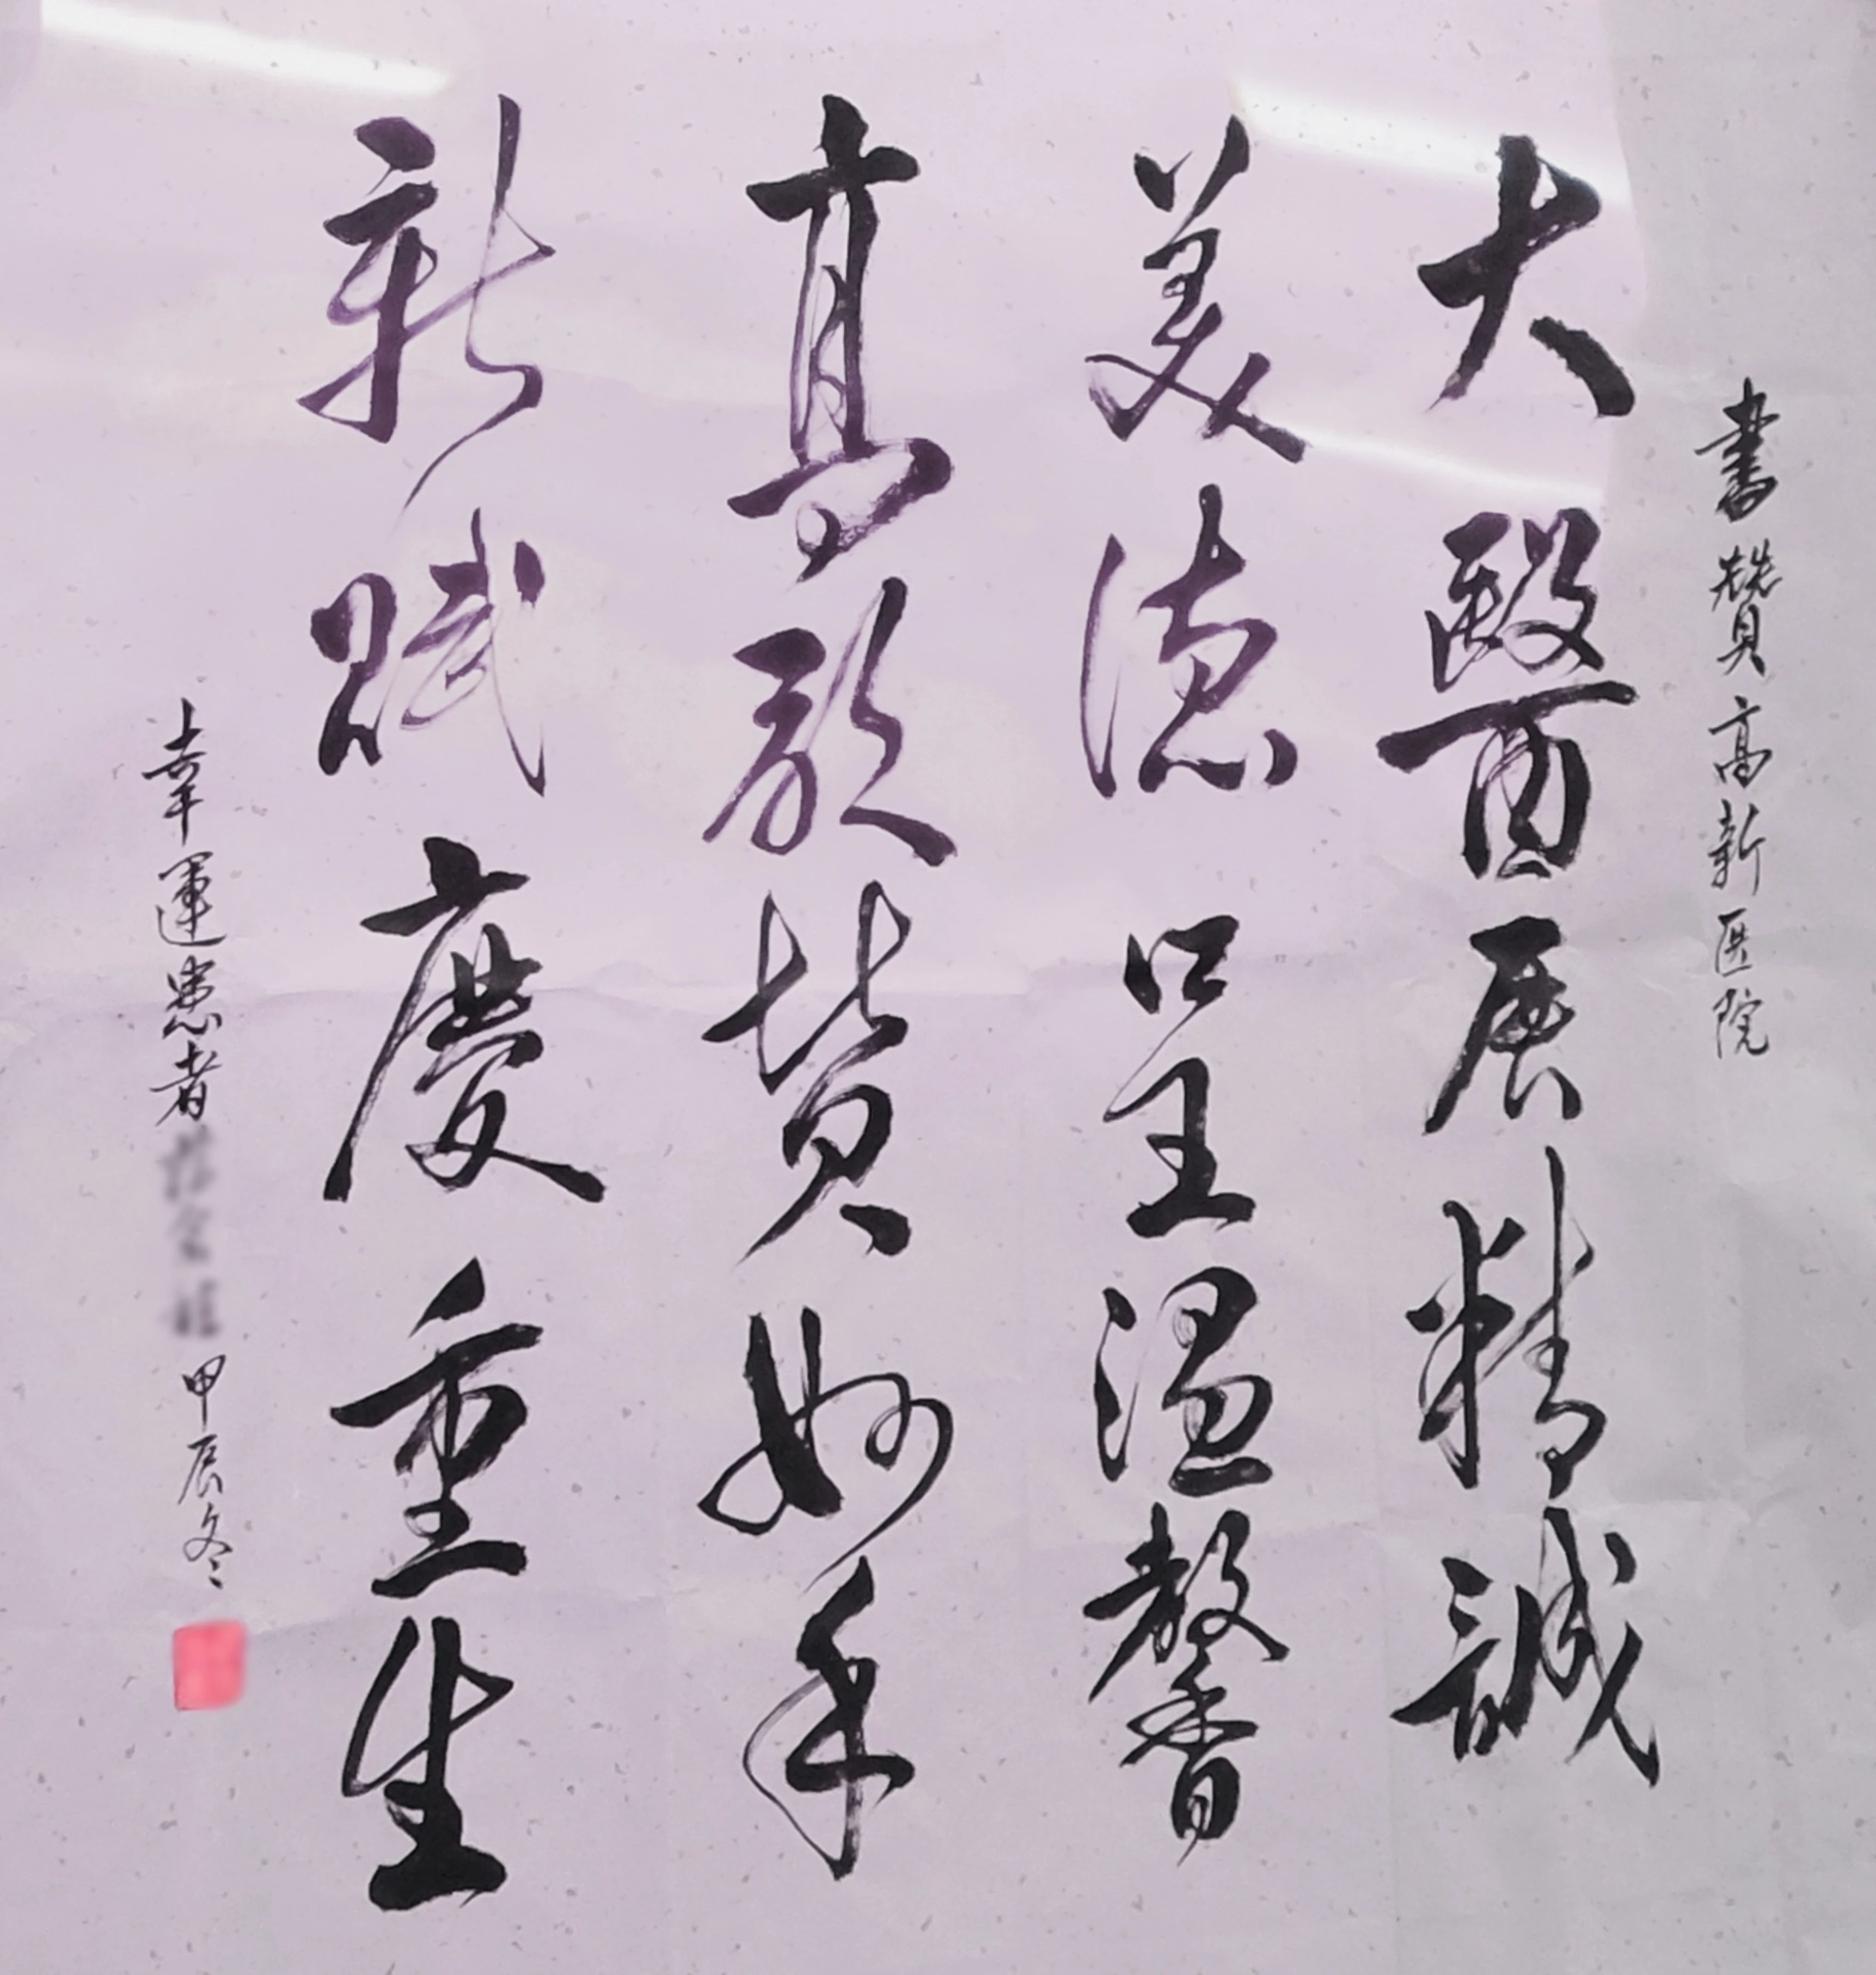 書贊高新医院
大醫展精誠
美德呈温馨
真贊妙手
新賦慶重生
幸運患者 甲辰冬